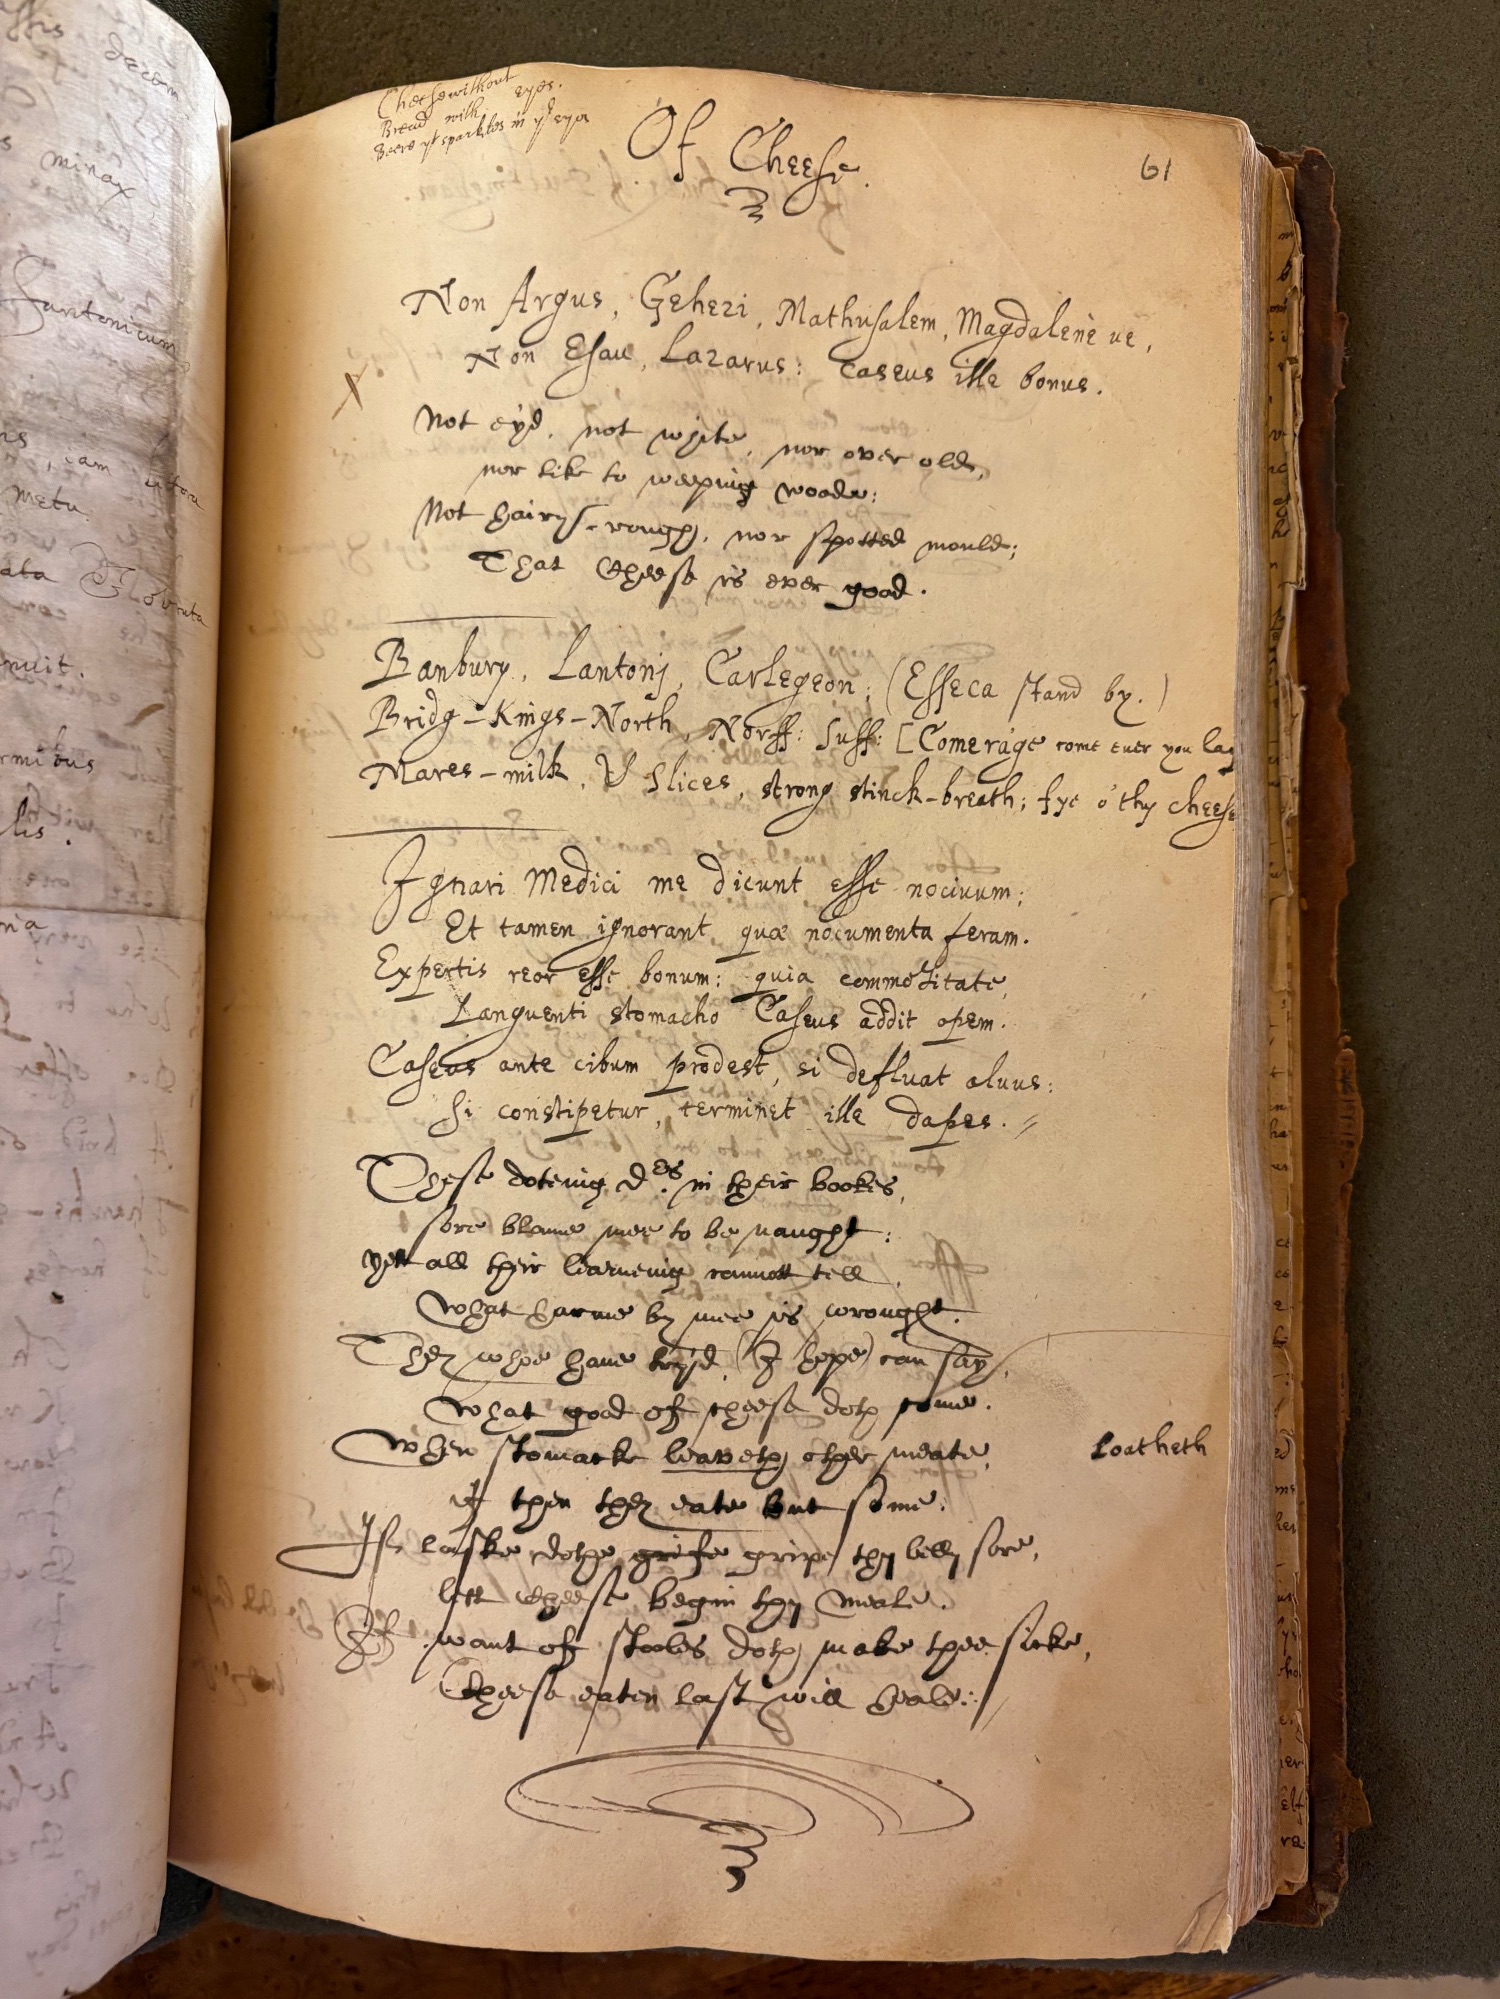 Cheese without
Bread with eyes.
Beere yt sparkles in ye eyes
Of Cheese.
61
Non Argus, Gehezi, Mathusalem, Magdalene ue,
Non Esau, Lazarus: caseus ille bonus.
X
Not ey'd, not white, nor over olde,
nor like to weeping woode:
Not hairy-rough, nor spotted mould;
That Cheese is ever good.
Banbury, Lantonj, Carlegeon; (Esseca stand by.)
Bridg-Kings-North, Norff: Suff: [Comerage come ever you lag
Mares-milk, V slices, strong stinck-breath; fye o' thy cheese
Ignari Medici me dicunt esse nociuum;
Et tamen ignorant quæ nocumenta feram.
Expertis reor esse bonum: quia commoditate,
Languenti stomacho Caseus addit opem.
Caseus ante cibum prodest, si defluat aluus:
Si constipetur, terminet ille dapes.
These doteing Des in their bookes,
sore blame mee to be naught:
yett all their learneing cannott tell,
What harme by mee is wrought.
They whoe haue try'd, (I hope) can say,
What good of cheese doth come.
When stomacke leaveth other meate,
Loatheth
If then they eate but some.
If laske dothe grife gripe thy belly sore,
lett Cheese begin thy Meale.
If want of stooles doth make thee sicke,
Cheese eaten last will heale.
dacem
minax
Santonicum
iam
metu.
ata
nuit.
rmibus
lis.